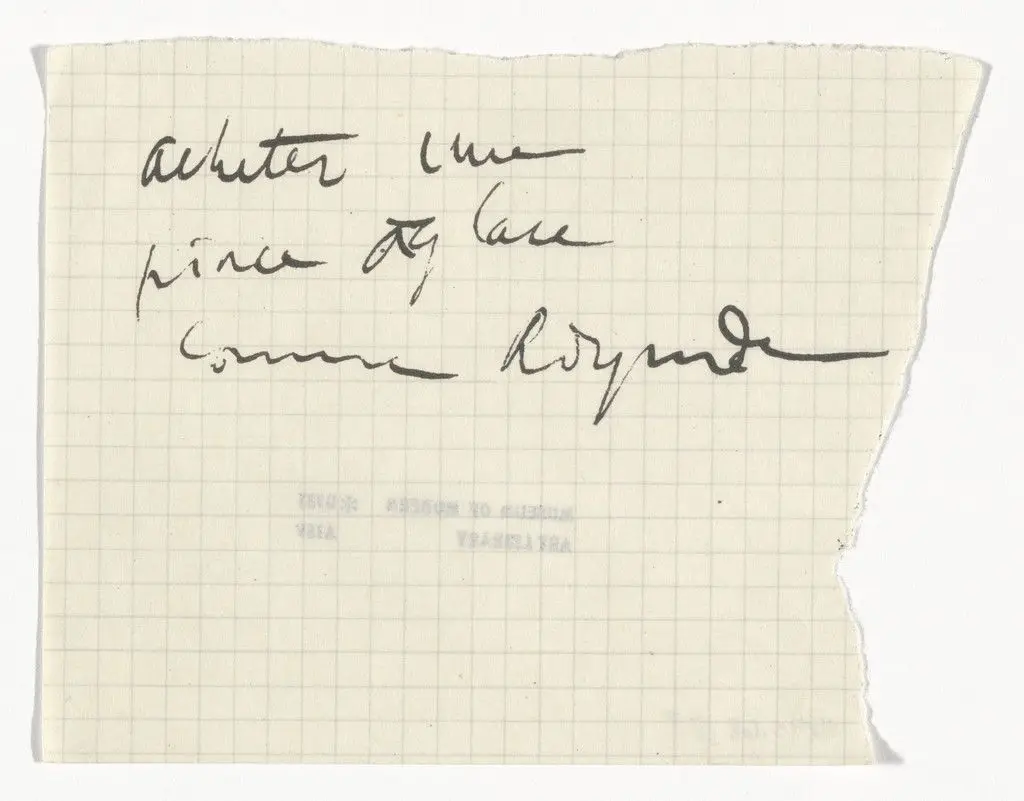 acheter une
pince à glace
comme
MUSEUM OF MODERN
ART LIBRARY